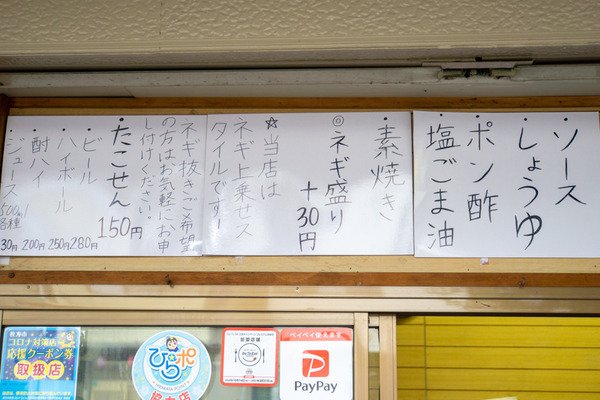 ソース
・しょうゆ
ポン酢
塩ごま油
・素焼き
◎ネギ盛り
＋30円
☆当店は
ネギ上乗せス
タイルです！
ネギ抜きご希望
の方はお気軽にお申
し付けください！
・たこせん 150円
・ビール 280円
・ハイボール 250円
酎ハイ 200円
ジュース 500ml 各種
枚方市
コロナ対策店
応援クーポン券
取扱店
ひらポ
HIRAKATA POINT
協力店
Go To Eat
ペイペイ使えます
PayPay